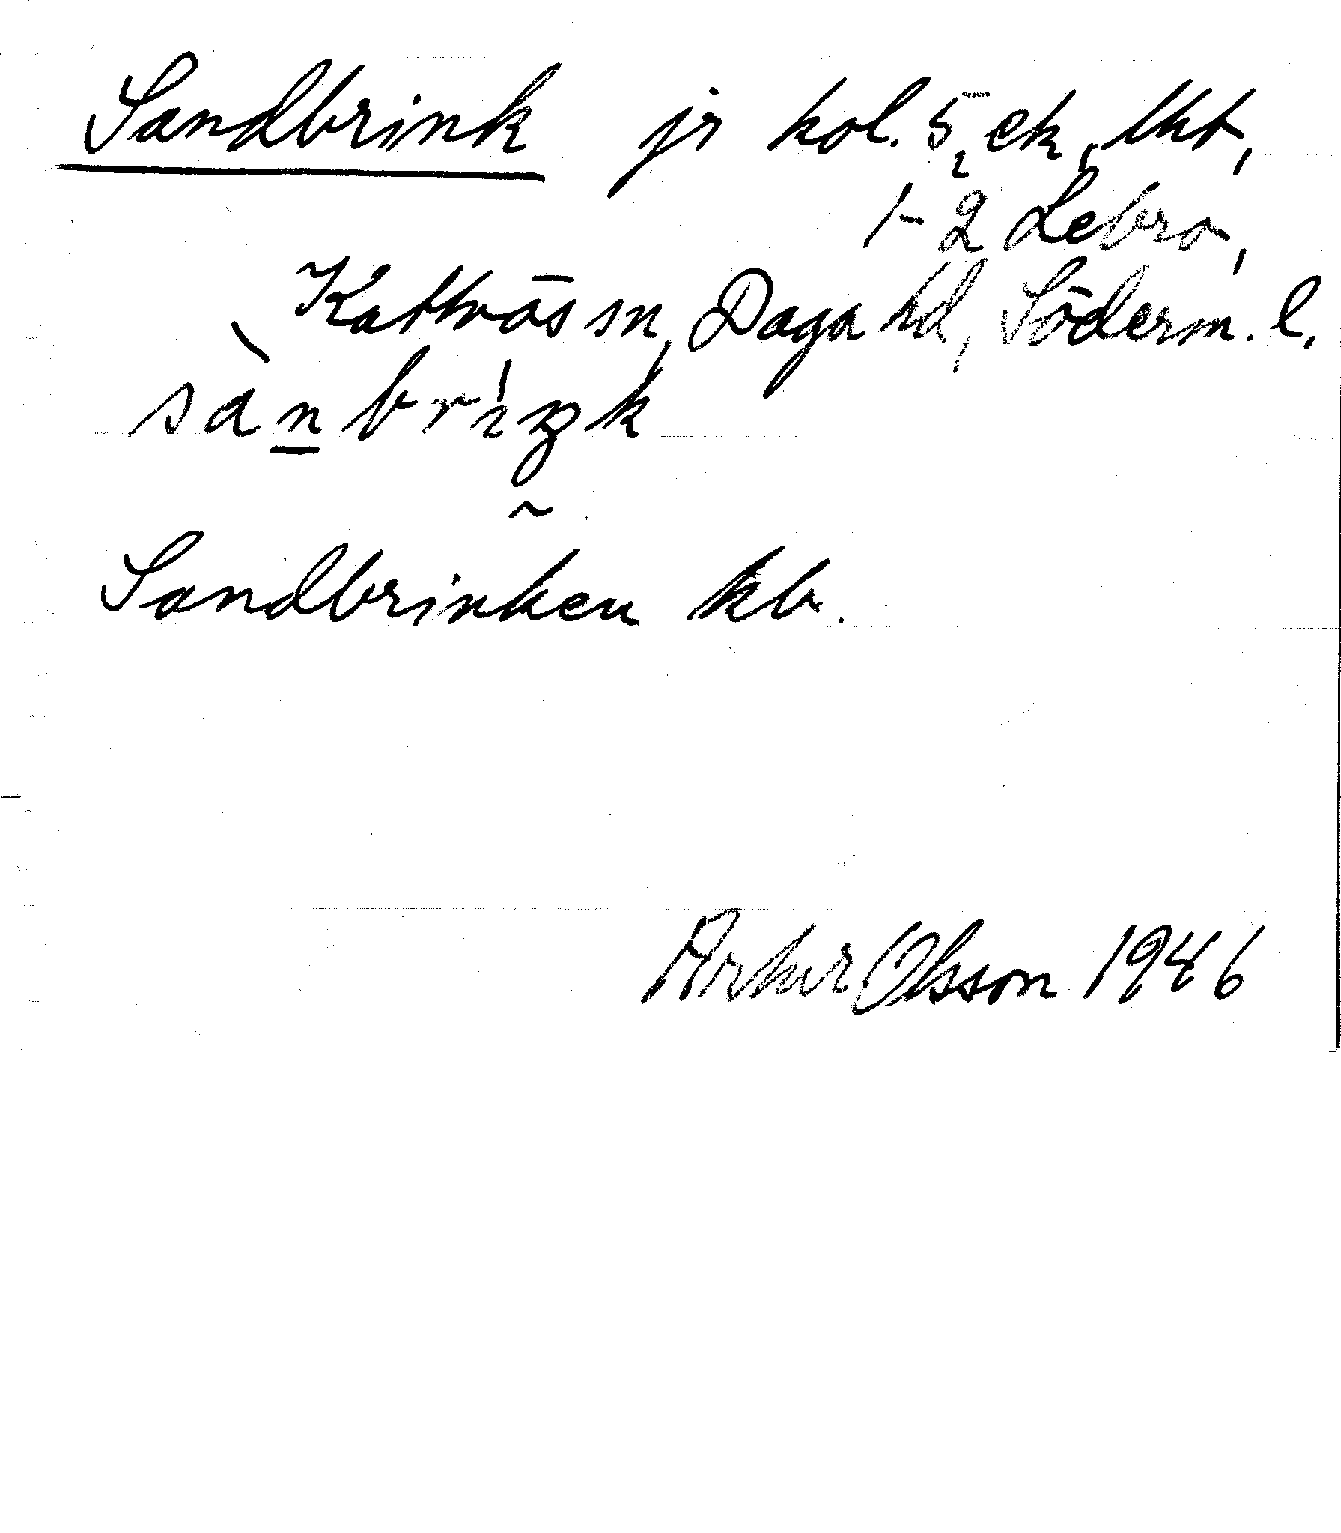 Sandbrink jr kol. 5, ek, lht,
1-2 Lebro,
Kattnäs sn, Daga hd, Söderm. l.
sànbrıŋk
~
Sandbrinken kb.
Artur Olsson 1946